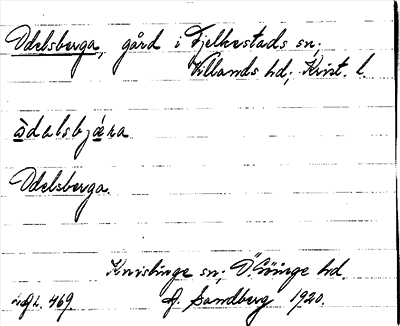 Odelsberga, gård i Fjelkestads sn;
Villands hd; Krist. l.
òdalsbjǽra
Odelsberga.
Knislinge sn; Ö. Göinge hd.
469. Sandberg 1920.